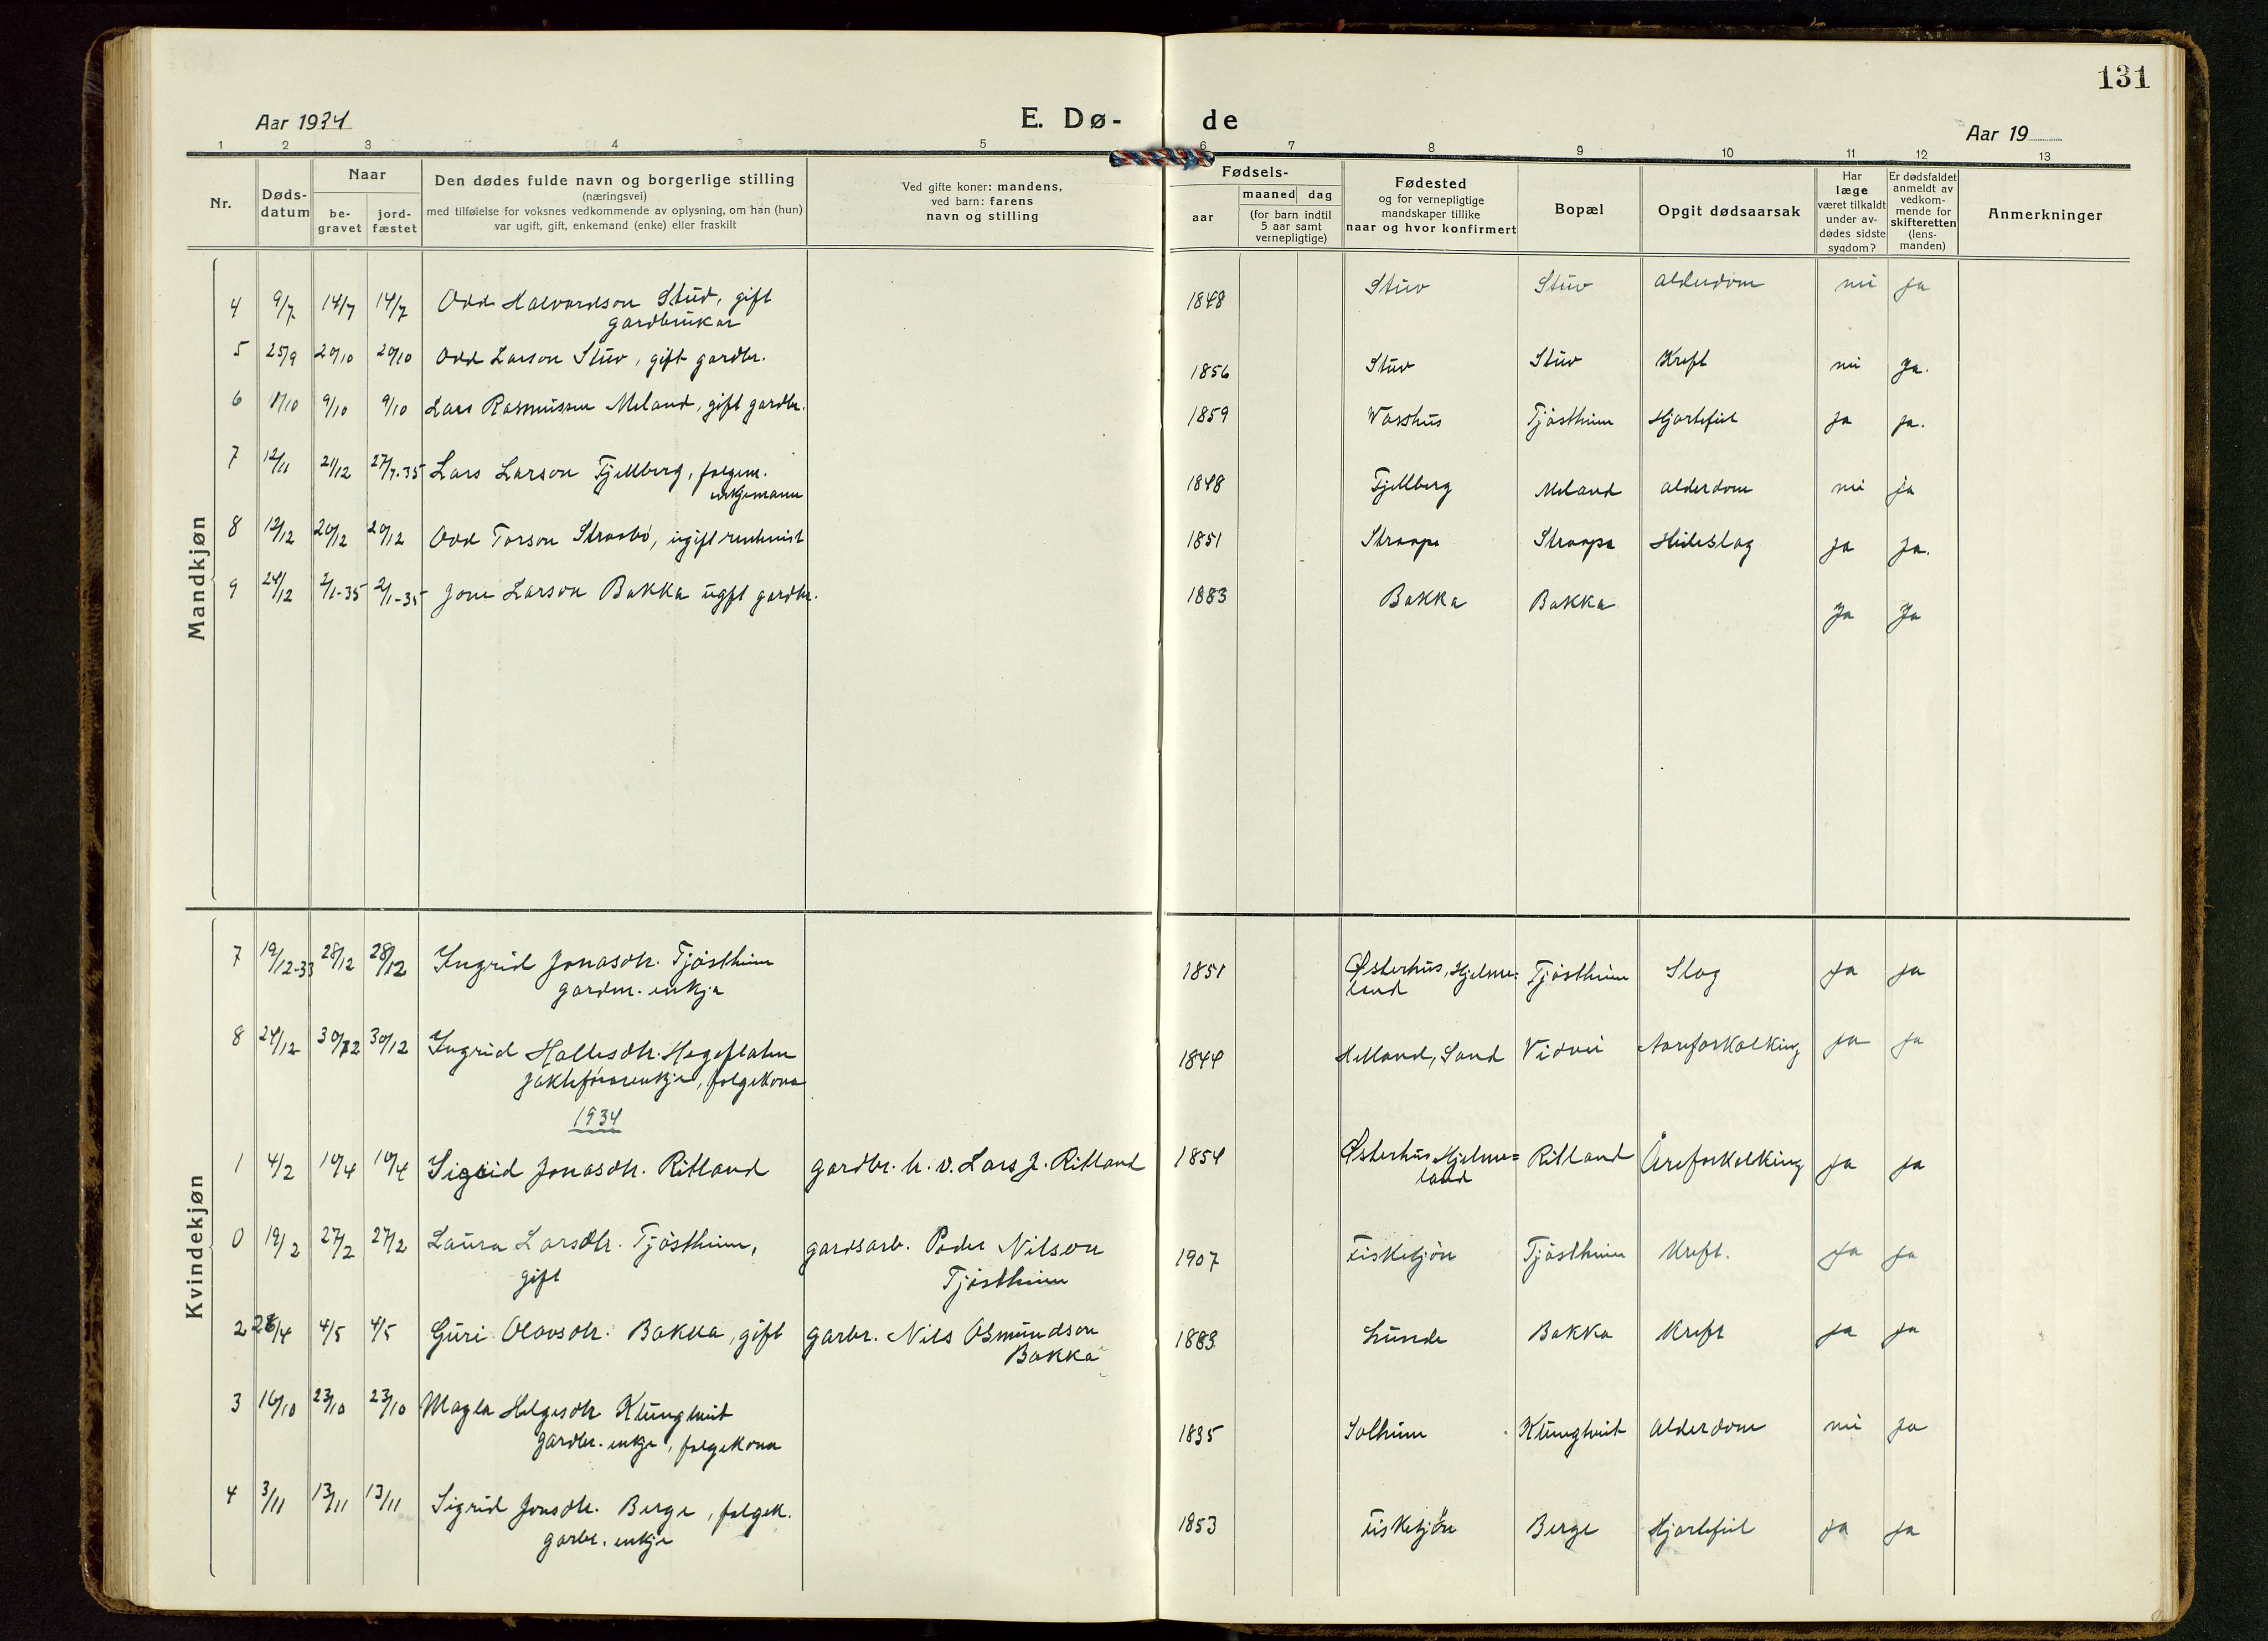 131
Aar 1934
E. Dø-
de
Aar 19
1 2 3 4 5 6 7 8 9 10 11 12 13
Nr.
Døds-
datum
Naar
be-
gravet
jord-
fæstet
Den dødes fulde navn og borgerlige stilling
(næringsvei)
med tilføielse for voksnes vedkommende av oplysning, om han (hun)
var ugift, gift, enkemand (enke) eller fraskilt
Ved gifte koner: mandens,
ved barn: farens
navn og stilling
Fødsels-
aar
maaned dag
(for barn indtil
5 aar samt
vernepligtige)
Fødested
og for vernepligtige
mandskaper tillike
naar og hvor konfirmert
Bopæl
Opgit dødsaarsak
Har
læge
været tilkaldt
under av-
dødes sidste
sygdom?
Er dødsfaldet
anmeldt av
vedkom-
mende for
skifteretten
(lens-
manden)
Anmerkninger
Mandkjøn
4 9/7 14/7 14/7 Odd Halvardson Stuv, gift 1848 Stuv Stuv alderdom nei ja
gardbrukar
5 25/9 20/10 20/10 Odd Larson Stuv, gift gardbr. 1856 Stuv Stuv Kreft nei Ja.
6 1/10 9/10 9/10 Lars Rasmussen Meland, gift gardbr. 1859 Vasshus Tjøstheim Hjartefeil ja ja.
7 12/11 21/12 27/7-35 Lars Larson Fjellberg, folgem. 1848 Fjellberg Meland alderdom nei ja
enkjemann
8 12/12 20/12 20/12 Odd Torson Straabø, ugift rentenist 1851 Straapa Straapa Heileslag ja Ja.
9 24/12 2/1-35 2/1-35 Jone Larson Bakka ugift gardbr. 1883 Bakka Bakka Ja Ja
Kvindekjøn
7 19/12-33 28/12 28/12 Ingrid Jonasdtr. Tjøstheim 1851 Østerhus, Hjelme= Tjøstheim Slag ja ja
gardm. enkja land
8 24/12 30/12 30/12 Ingrid Hallesdtr. Hageflaten 1844 Helland, Sand Vidvei Aareforkalking ja ja
jakteførarenkje, folgekona
1934
1 4/2 10/4 10/4 Sigrid Jonasdtr. Ritland gardbr. h. v. Lars J. Ritland 1854 Østerhus Hjelme= Ritland Åreforkalking ja ja
land
0 19/2 27/2 27/2 Laura Larsdtr. Tjøstheim, gardsarb. Peder Nilson 1907 Fisketjøn Tjøstheim Kreft. ja ja
gift Tjøstheim
2 28/4 4/5 4/5 Guri Olavsdtr. Bakka, gift garbr. Nils Osmundson 1889 Lunde Bakka Kreft ja ja
Bakka
3 16/10 23/10 23/10 Magla Helgesdtr Klungtveit 1835 Solheim Klungtveit alderdom nei ja
gardbr. enkje, folgekona
4 3/11 13/11 13/11 Sigrid Jonsdtr. Berge, folgek. 1853 Fisketjøn Berge Hjartefeil ja ja
garbr. enkje